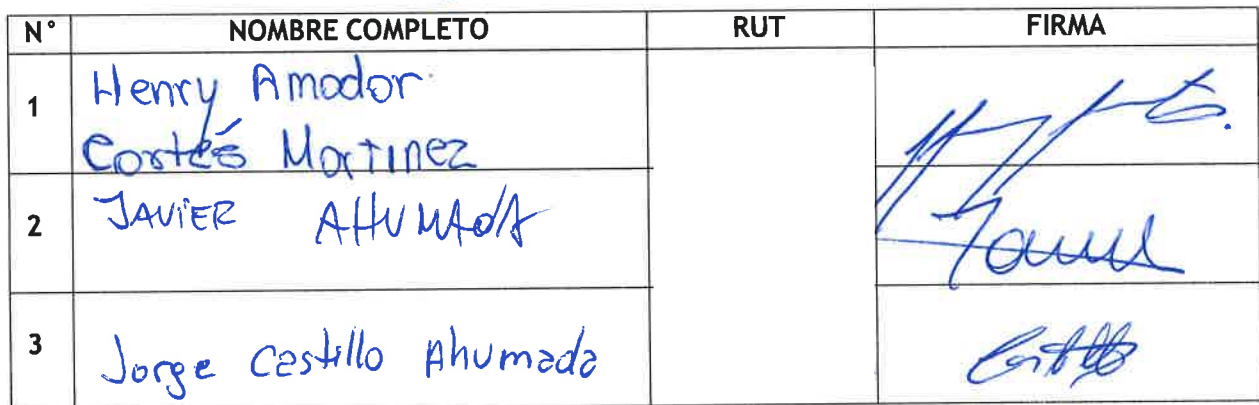 N° NOMBRE COMPLETO RUT FIRMA
1 Henry Amador
Cortés Martinez
2 JAVIER AHUMADA
3 Jorge Castillo Ahumada